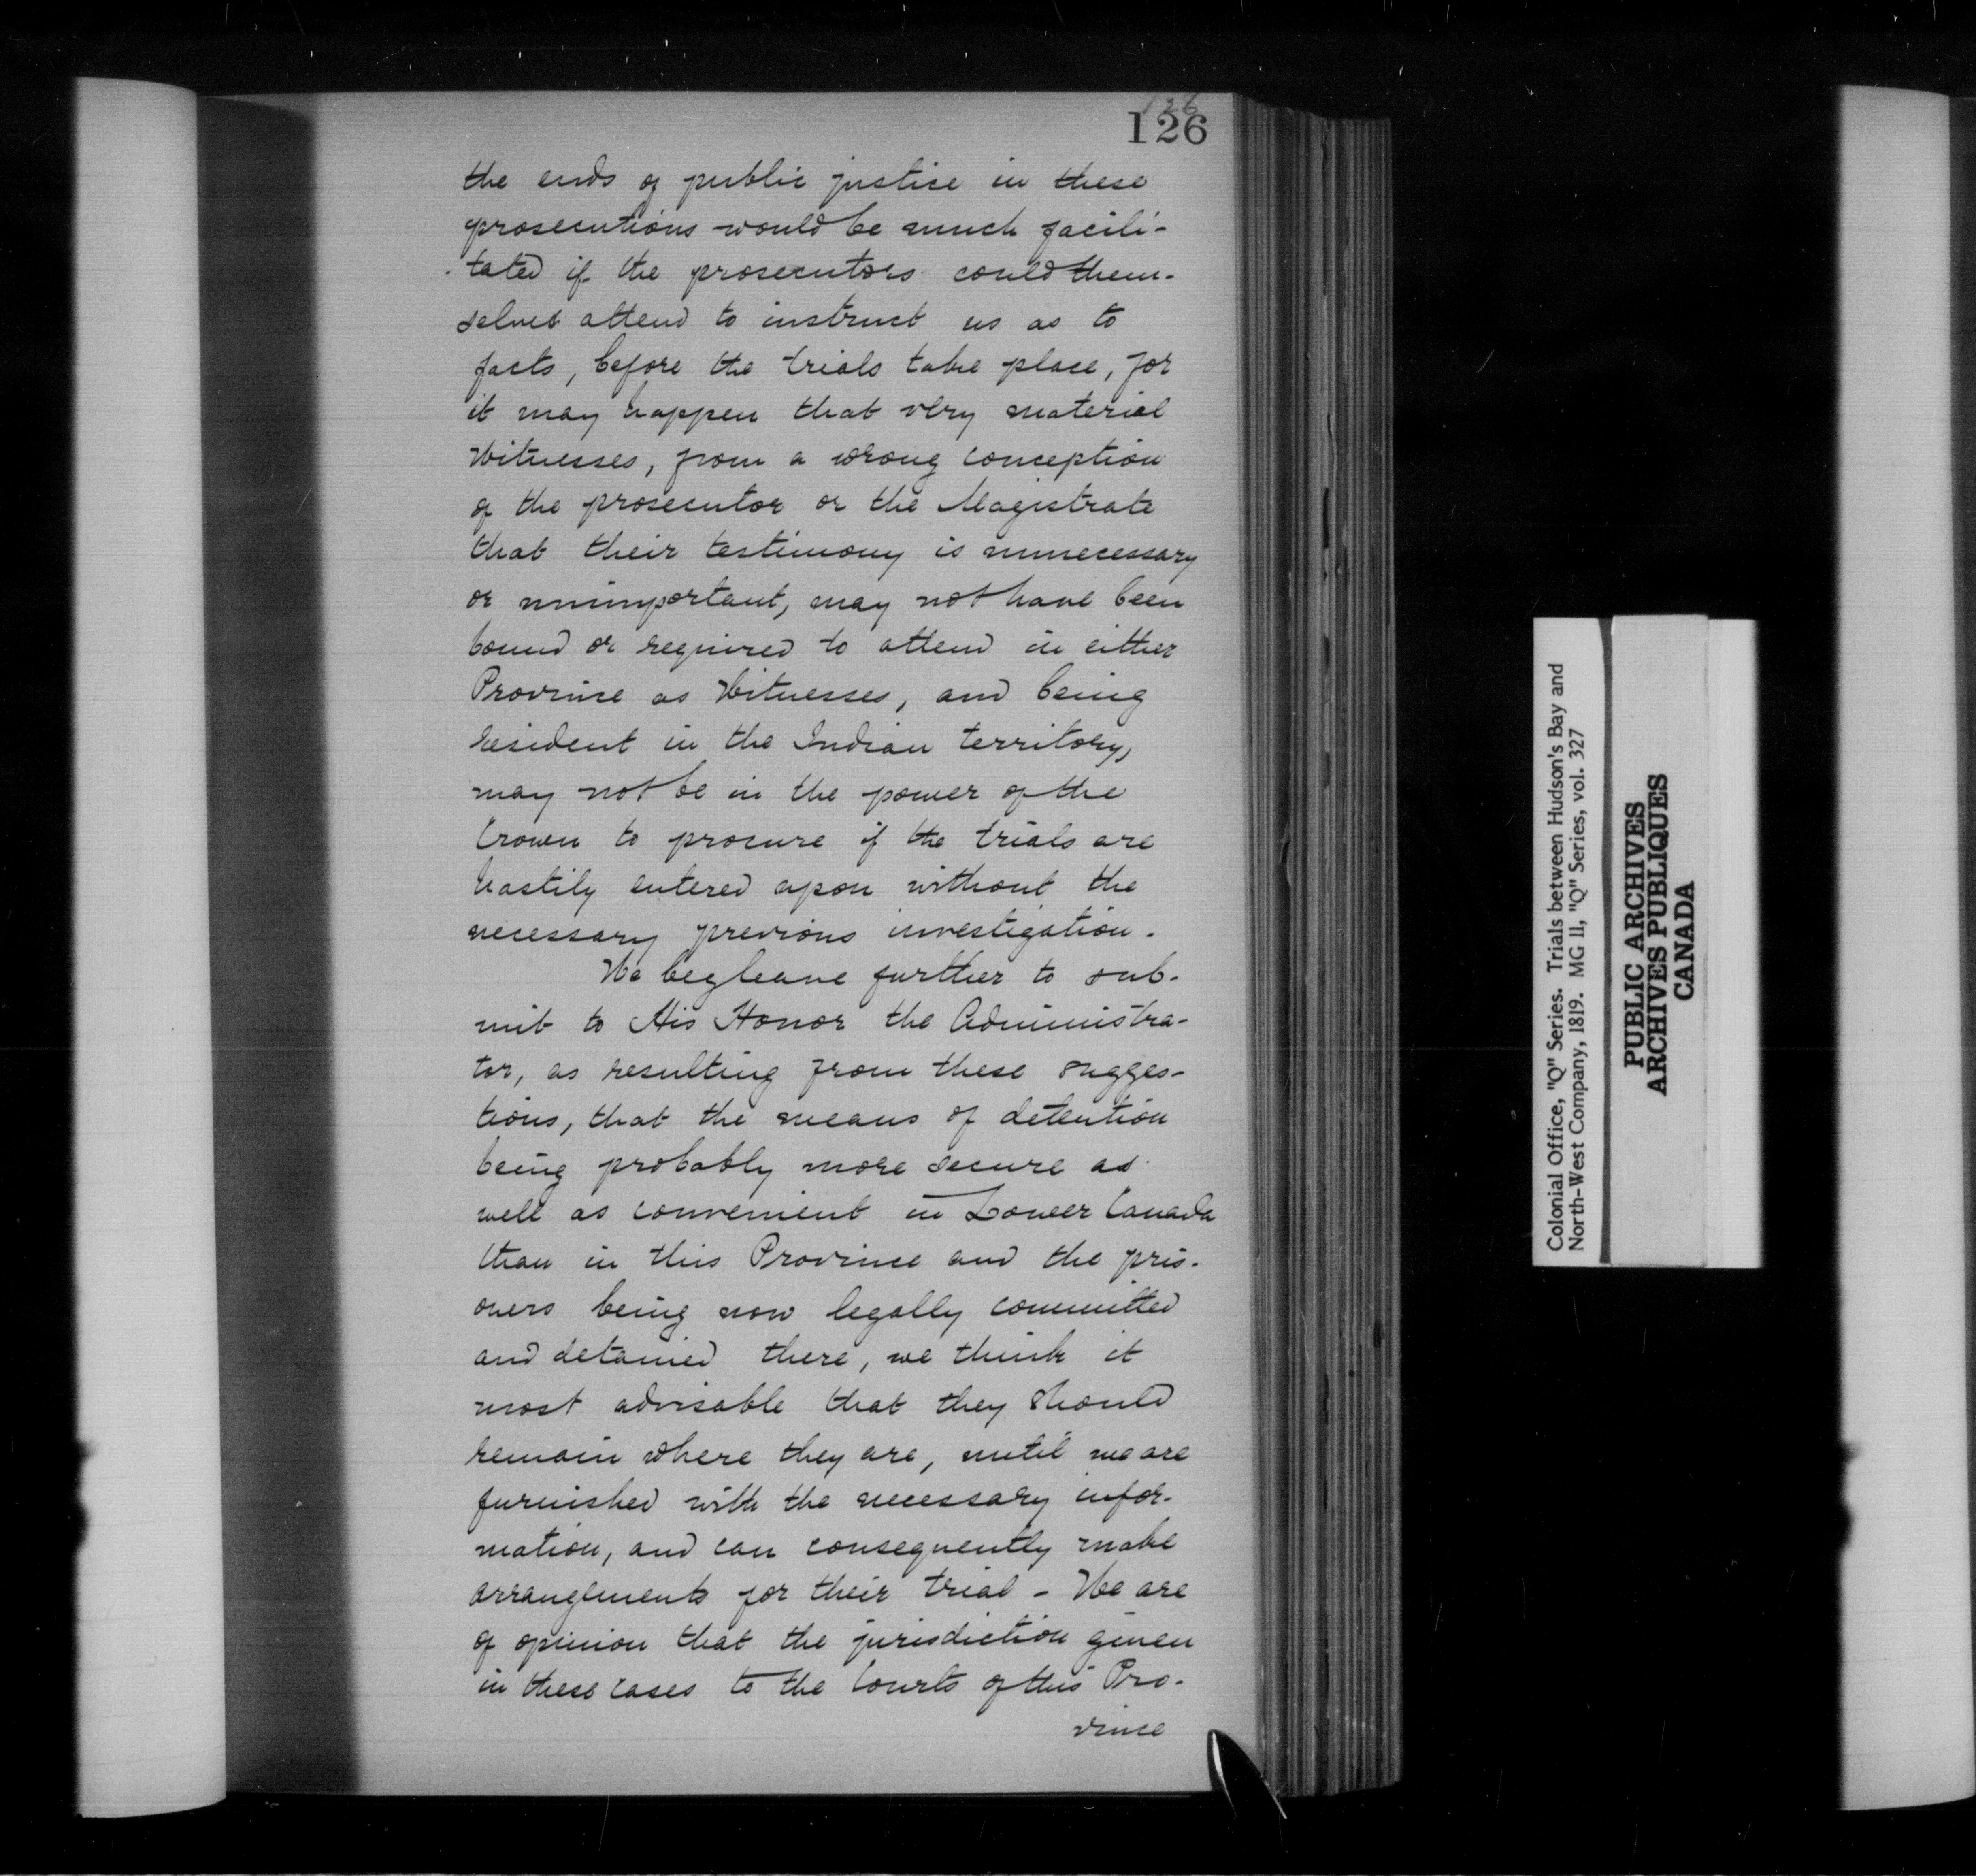 126
126
the ends of public justice in these
prosecutions would be much facili-
tated if the prosecutors could them-
selves attend to instruct us as to
facts, before the trials take place, for
it may happen that very material
Witnesses, from a wrong conception
of the prosecutor or the Magistrate
that their testimony is unnecessary
or unimportant, may not have been
bound or required to attend in either
Province as Witnesses, and being
resident in the Indian territory,
may not be in the power of the
Crown to procure if the trials are
hastily entered upon without the
necessary previous investigation.
We beg leave further to sub-
mit to His Honor the Administra-
tor, as resulting from these sugges-
tions, that the means of detention
being probably more secure as
well as convenient in Lower Canada
than in this Province and the pris-
oners being now legally committed
and detained there, we think it
most advisable that they should
remain where they are, until we are
furnished with the necessary infor-
mation, and can consequently make
arrangements for their trial - We are
of opinion that the jurisdiction given
in these cases to the Courts of this Pro-
vince
Colonial Office, "Q" Series. Trials between Hudson's Bay and
North-West Company, 1819. MG 11, "Q" Series, vol. 327
PUBLIC ARCHIVES
ARCHIVES PUBLIQUES
CANADA